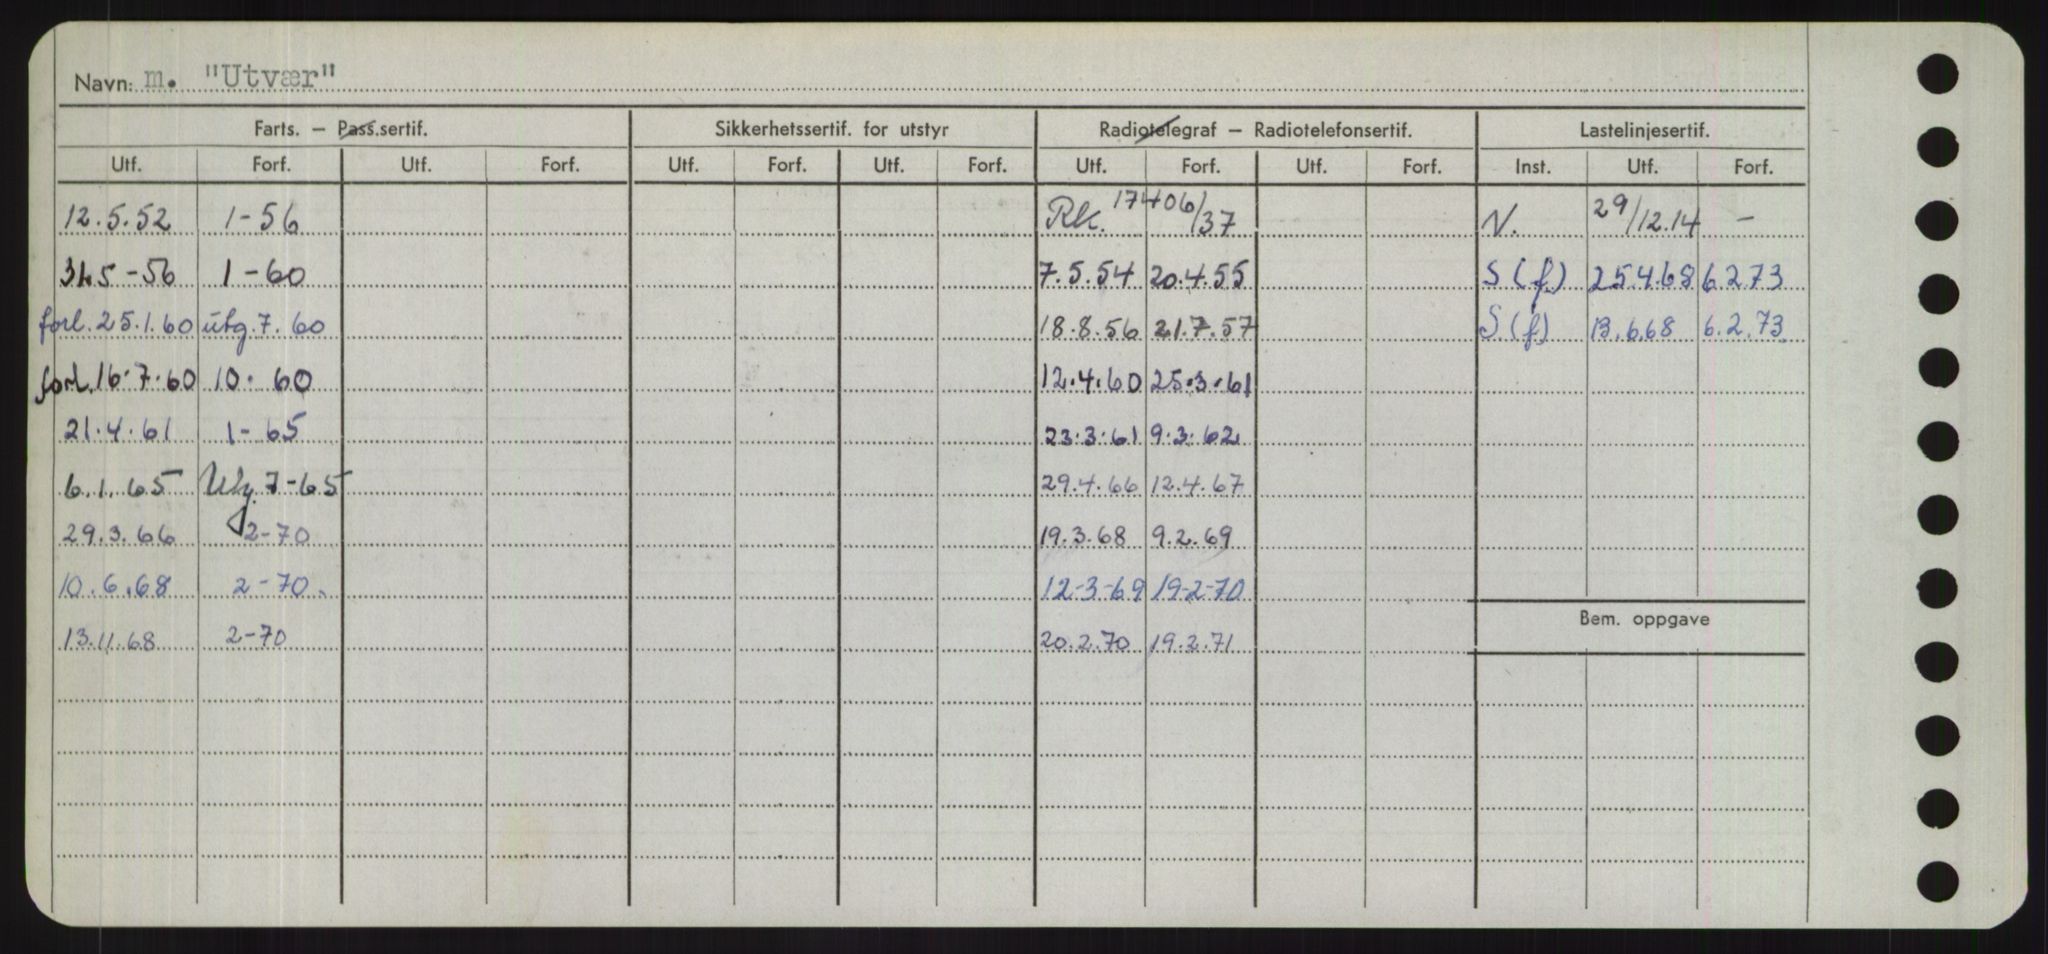 Navn: m. "Utvær"
Farts. – Pass.sertif. Sikkerhetssertif. for utstyr Radiotelegraf – Radiotelefonsertif. Lastelinjesertif.
Utf. Forf. Utf. Forf. Utf. Forf. Utf. Forf. Utf. Forf. Utf. Forf. Inst. Utf. Forf.
12.5.52 1-56 Rk. 17406/37 N. 29/12.14 –
5-56 1-60 7.5.54 20.4.55 S (f.) 25.4.68 6.2.73
forl. 25.1.60 utg. 7. 60 18.8.56 21.7.57 S. (f) 13.6.68 6.2.73.
forl. 16.7.60 10. 60 12.4.60 25.3.61
21.4.61 1-65 23.3.61 9.3.62
6.1.65 Utg. 7-65 29.4.66 12.4.67
29.3.66 2-70 19.3.68 9.2.69
10.6.68 2-70. 12-3-69 19-2-70
Bem. oppgave
13.11.68 2-70 20.2.70 19.2.71